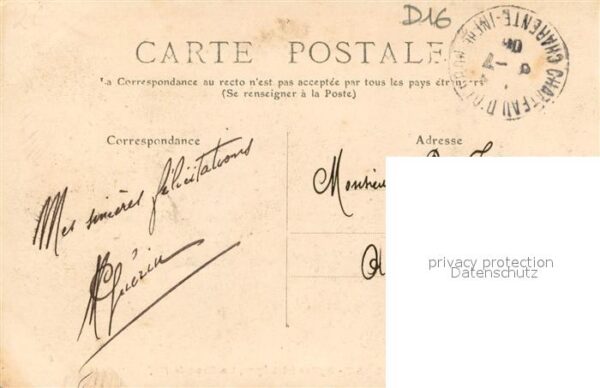 D16
CARTE POSTALE
La Correspondance au recto n'est pas acceptée par tous les pays étrangers
(Se renseigner à la Poste)
CHATEAU D'OLERON
CHARENTE-INFRE
Correspondance
Adresse
Mes sincères félicitations
Guérin
Monsieur
privacy protection
Datenschutz